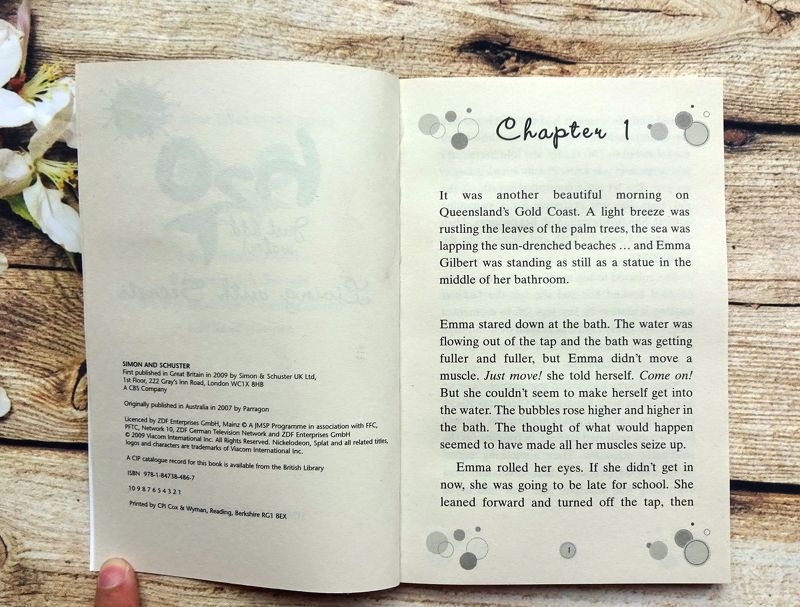 SIMON AND SCHUSTER
First published in Great Britain in 2009 by Simon & Schuster UK Ltd,
1st Floor, 222 Gray's Inn Road, London WC1X 8HB
A CBS Company
Originally published in Australia in 2007 by Parragon
Licenced by ZDF Enterprises GmbH, Mainz © A JMSP Programme in association with FFC,
PFTC, Network 10, ZDF German Television Network and ZDF Enterprises GmbH
© 2009 Viacom International Inc. All Rights Reserved. Nickelodeon, Splat and all related titles,
logos and characters are trademarks of Viacom International Inc.
A CIP catalogue record for this book is available from the British Library
ISBN 978-1-84738-486-7
10 9 8 7 6 5 4 3 2 1
Printed by CPI Cox & Wyman, Reading, Berkshire RG1 8EX
Chapter 1
It was another beautiful morning on
Queensland's Gold Coast. A light breeze was
rustling the leaves of the palm trees, the sea was
lapping the sun-drenched beaches ... and Emma
Gilbert was standing as still as a statue in the
middle of her bathroom.
Emma stared down at the bath. The water was
flowing out of the tap and the bath was getting
fuller and fuller, but Emma didn't move a
muscle. Just move! she told herself. Come on!
But she couldn't seem to make herself get into
the water. The bubbles rose higher and higher in
the bath. The thought of what would happen
seemed to have made all her muscles seize up.
Emma rolled her eyes. If she didn't get in
now, she was going to be late for school. She
leaned forward and turned off the tap, then
1